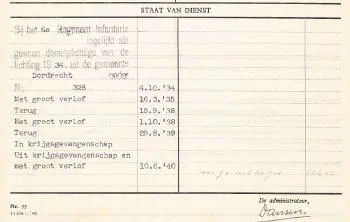 STAAT VAN DIENST
Bij het 6e Regiment Infanterie
ingelijfd als
gewoon dienstplichtige van de
lichting 1934, uit de gemeente
Dordrecht onder
Nr. 328 4.10.'34
Met groot verlof 16.3.'35
Terug 15.9.'38
Met groot verlof 1.10.'38
Terug 29.8.'39
In krijgsgevangenschap
Uit krijgsgevangenschap en
met groot verlof 10.6.'40
De administrateur,
Nr. 77